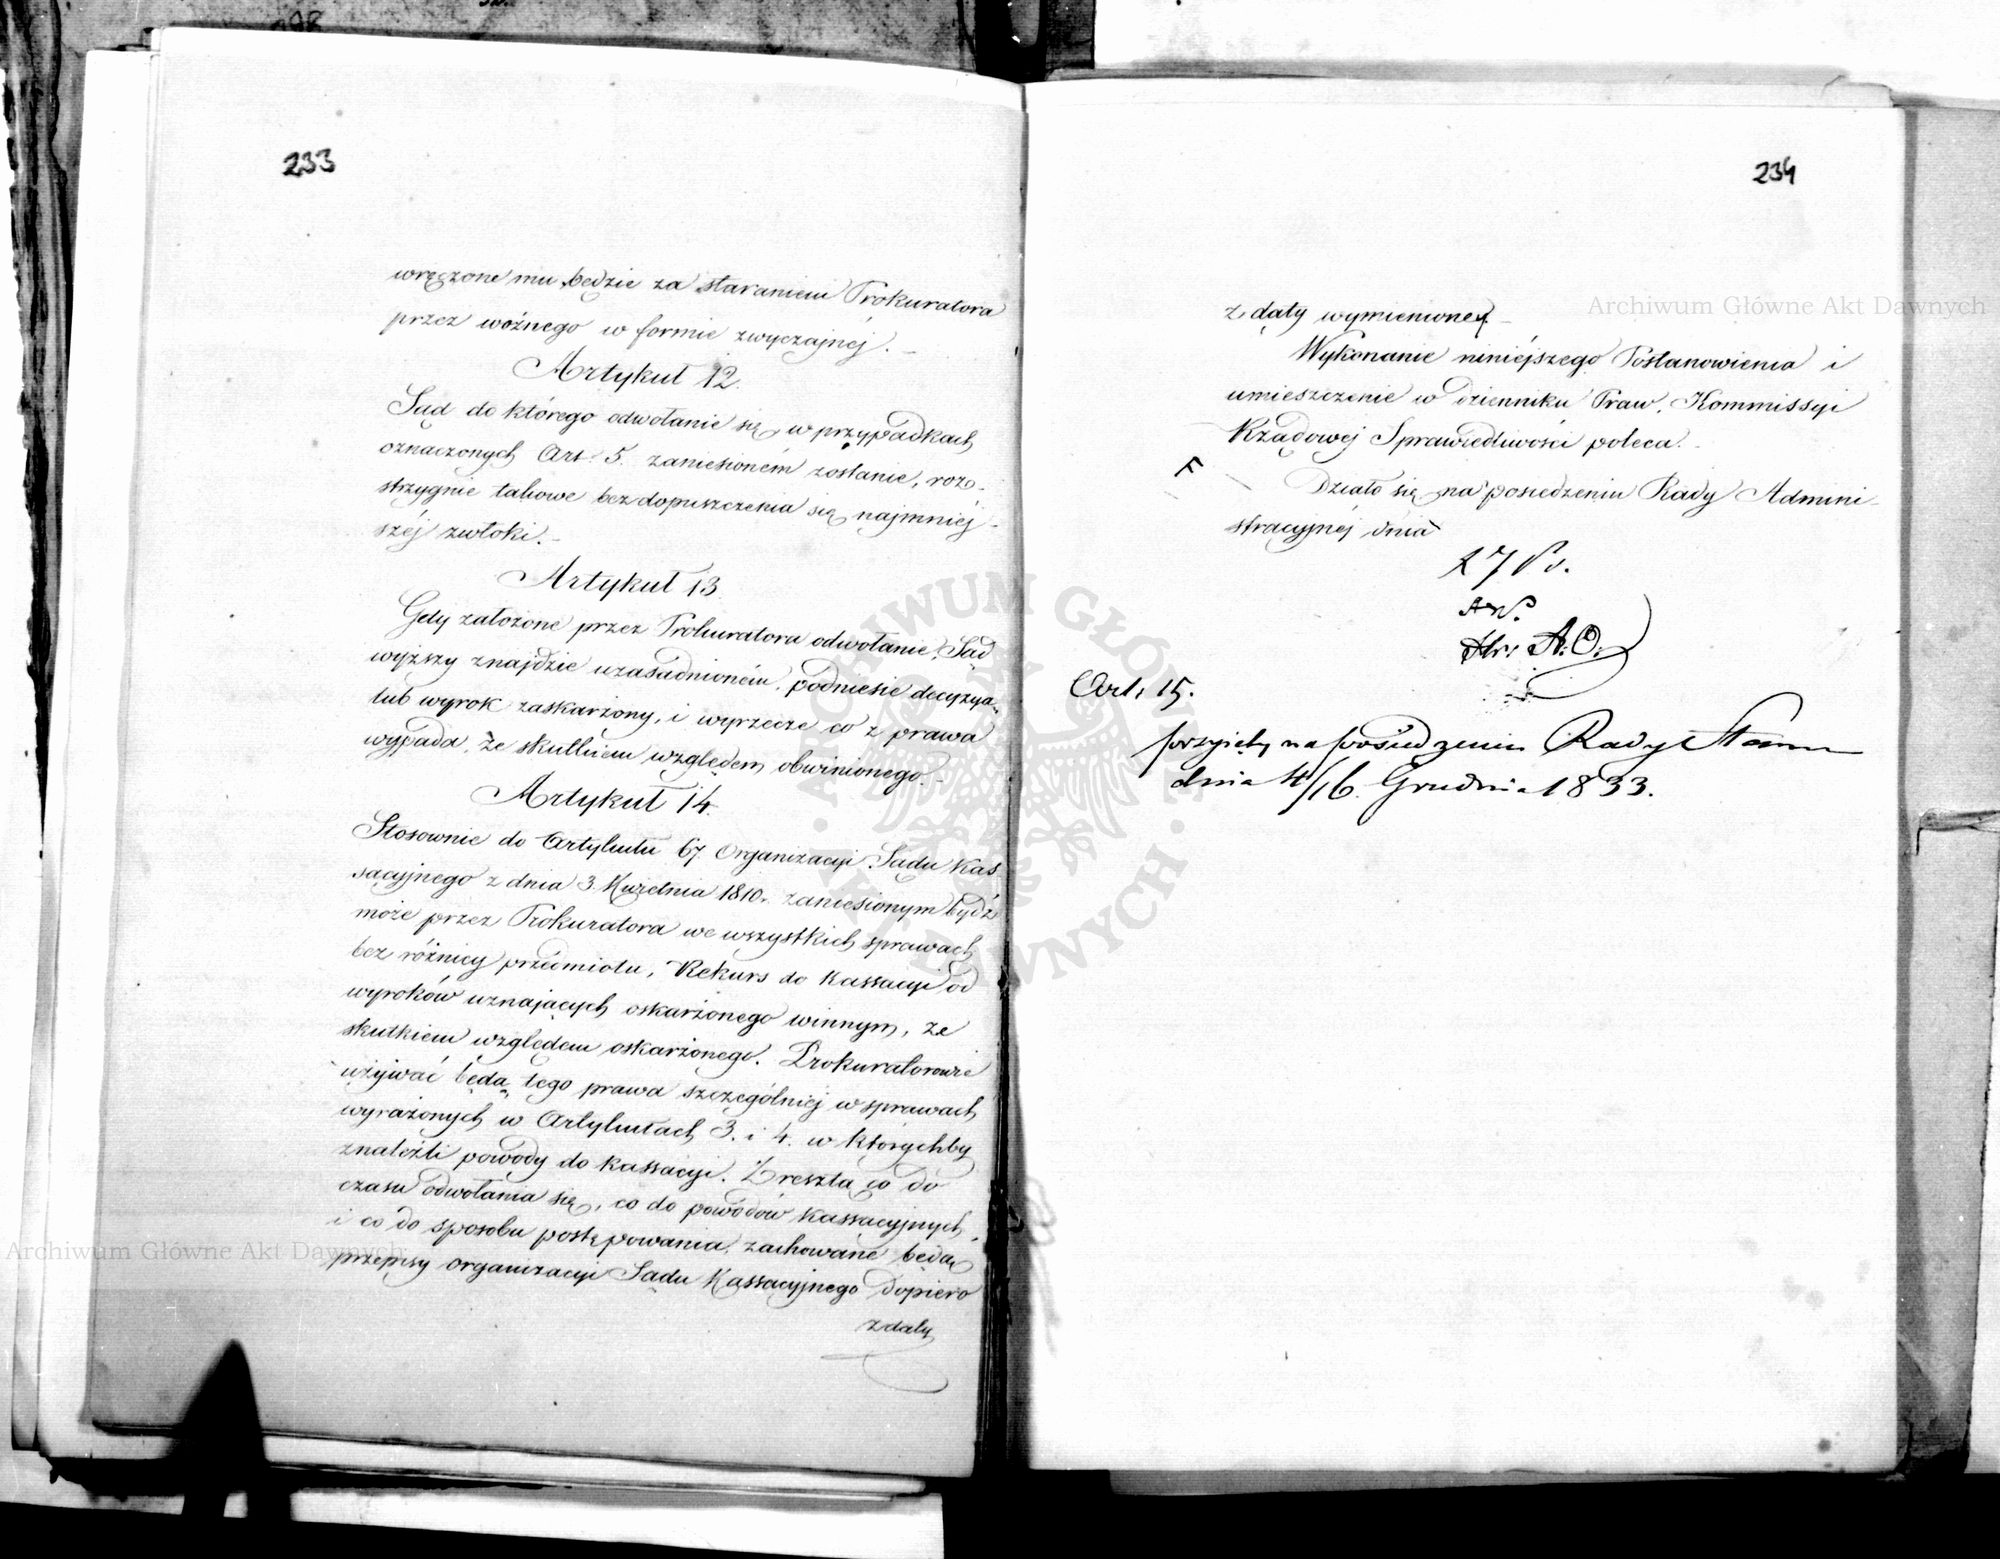 233
wręczone mu będzie za staraniem Prokuratora
przez woźnego w formie zwyczajnéj. _
Artykuł 12.
Sąd do którego odwołanie się, w przypadkach
oznaczonych Art: 5. zaniesioném zostanie, roz-
strzygnie takowe bez dopuszczenia się najmniéj-
széj zwłoki. _
Artykuł 13
Gdy założone przez Prokuratora odwołanie, Sąd
wyższy znajdzie uzasadnioném, podniesie decyzyą
lub wyrok zaskarżony, i wyrzecze co z prawa
wypada, ze skutkiem względem obwinionego. _
Artykuł 14.
Stosownie do Artykułu 67 Organizacyi Sądu Kas
sacyjnego z dnia 3. Kwietnia 1810. zaniesionym bydź
może przez Prokuratora we wszystkich sprawach
bez różnicy przedmiotu, Rekurs do Kassacyi od
wyroków uznających oskarżonego winnym, ze
skutkiem względem oskarżonego. Prokuratorowie
używać będą tego prawa szczególniéj w sprawach
wyrażonych w Artykułach 3. i 4. w którychby
znaleźli powody do kassacyi. Zresztą co do
czasu odwołania się, co do powodów kassacyjnych,
i co do sposobu postępowania, zachowane będą
przepisy organizacyi Sądu Kassacyjnego dopiero
z daty
234
z daty wymienionej. _
Wykonanie niniejszego Postanowienia i
umieszczenie w dzienniku Praw, Kommissyi
Rządowéj Sprawiedliwości poleca. _
F
Działo się na posiedzeniu Rady Admini-
stracyjnéj dnia
A. O.
Art: 15.
przyięty na posiedzeniu Rady Stanu
dnia 4/16. Grudnia 1833.
Archiwum Główne Akt Dawnych
Archiwum Główne Akt Dawnych
ARCHIWUM GŁÓWNE AKT DAWNYCH